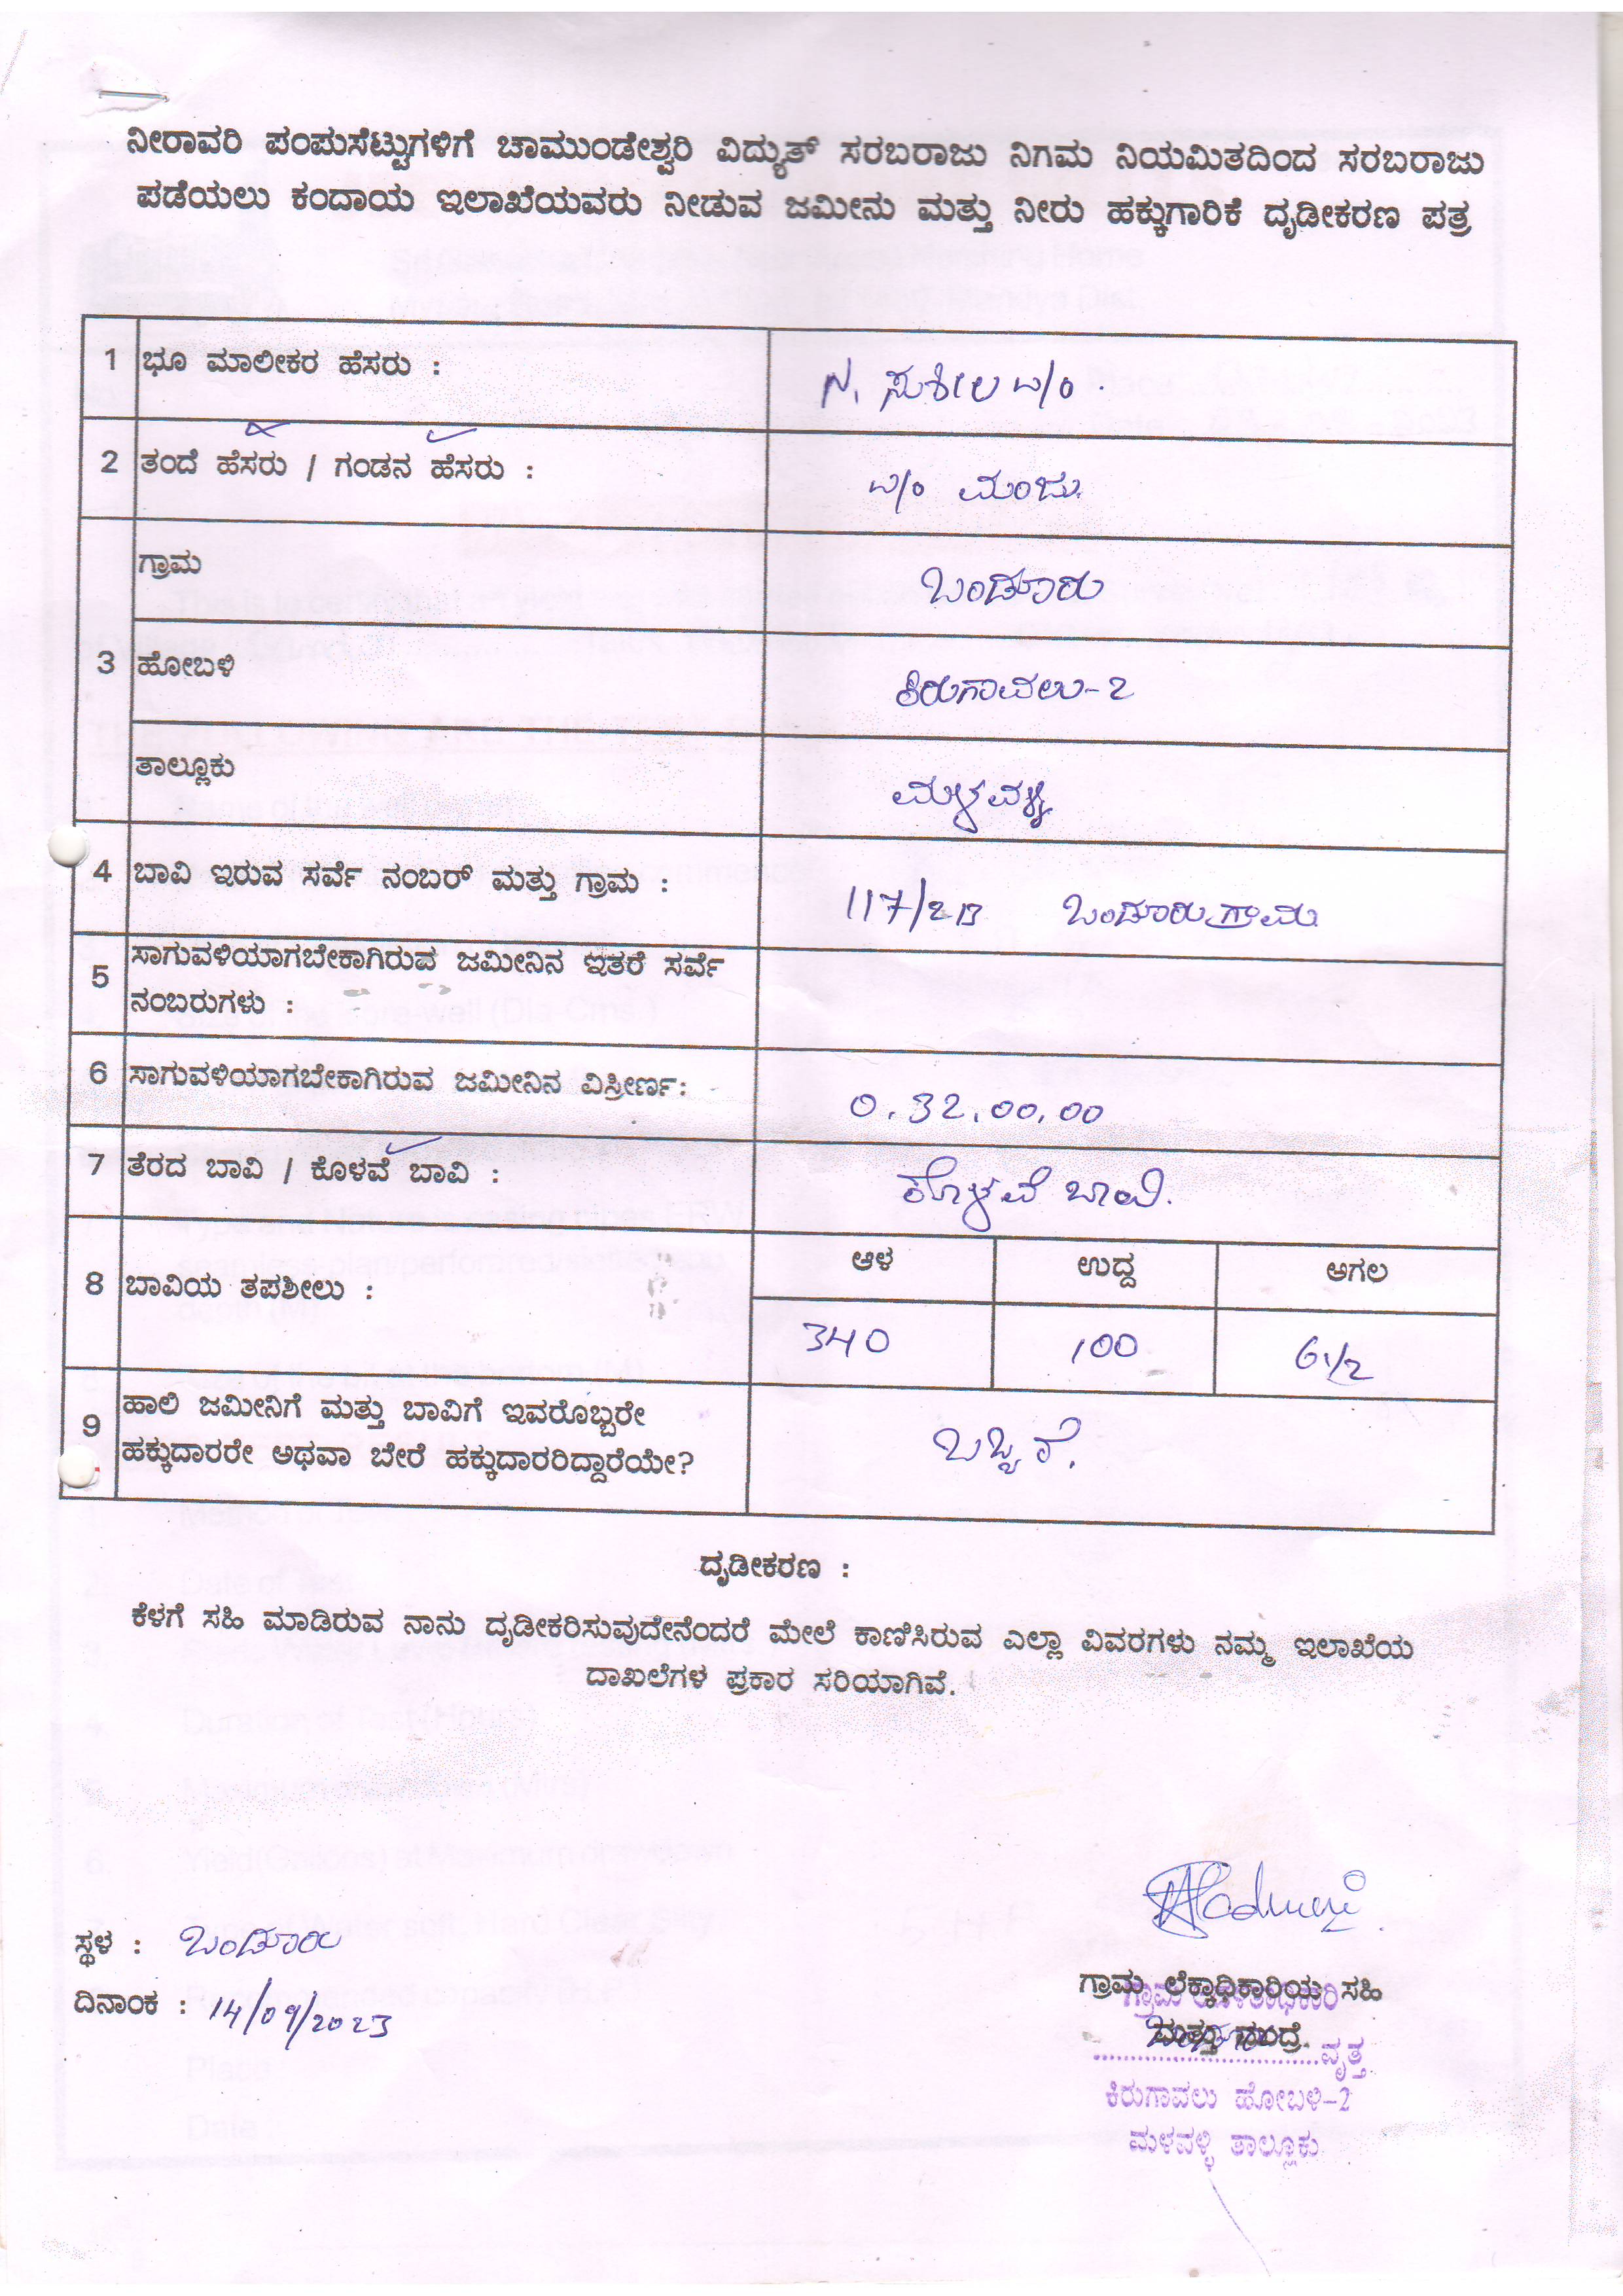 ನೀರಾವರಿ ಪಂಪುಸೆಟ್ಟುಗಳಿಗೆ ಚಾಮುಂಡೇಶ್ವರಿ ವಿದ್ಯುತ್ ಸರಬರಾಜು ನಿಗಮ ನಿಯಮಿತದಿಂದ ಸರಬರಾಜು
ಪಡೆಯಲು ಕಂದಾಯ ಇಲಾಖೆಯವರು ನೀಡುವ ಜಮೀನು ಮತ್ತು ನೀರು ಹಕ್ಕುಗಾರಿಕೆ ದೃಡೀಕರಣ ಪತ್ರ
1 ಭೂ ಮಾಲೀಕರ ಹೆಸರು : N. ಸುಶೀಲ w/o .
2 ತಂದೆ ಹೆಸರು / ಗಂಡನ ಹೆಸರು : w/o ಮಂಜು.
ಗ್ರಾಮ ಬಂಡೂರು
3 ಹೋಬಳಿ ಕಿರುಗಾವಲು-2
ತಾಲ್ಲೂಕು ಮಳವಳ್ಳಿ
4 ಬಾವಿ ಇರುವ ಸರ್ವೆ ನಂಬರ್ ಮತ್ತು ಗ್ರಾಮ : 117/2B ಬಂಡೂರು ಗ್ರಾಮ
5 ಸಾಗುವಳಿಯಾಗಬೇಕಾಗಿರುವ ಜಮೀನಿನ ಇತರೆ ಸರ್ವೆ
ನಂಬರುಗಳು :
6 ಸಾಗುವಳಿಯಾಗಬೇಕಾಗಿರುವ ಜಮೀನಿನ ವಿಸ್ತೀರ್ಣ: 0.32.00.00
7 ತೆರದ ಬಾವಿ / ಕೊಳವೆ ಬಾವಿ : ಕೊಳವೆ ಬಾವಿ.
ಆಳ ಉದ್ದ ಅಗಲ
8 ಬಾವಿಯ ತಪಶೀಲು :
340 100 6 1/2
9 ಹಾಲಿ ಜಮೀನಿಗೆ ಮತ್ತು ಬಾವಿಗೆ ಇವರೊಬ್ಬರೇ
ಹಕ್ಕುದಾರರೇ ಅಥವಾ ಬೇರೆ ಹಕ್ಕುದಾರರಿದ್ದಾರೆಯೇ? ಒಬ್ಬರೆ.
ದೃಡೀಕರಣ :
ಕೆಳಗೆ ಸಹಿ ಮಾಡಿರುವ ನಾನು ದೃಡೀಕರಿಸುವುದೇನೆಂದರೆ ಮೇಲೆ ಕಾಣಿಸಿರುವ ಎಲ್ಲಾ ವಿವರಗಳು ನಮ್ಮ ಇಲಾಖೆಯ
ದಾಖಲೆಗಳ ಪ್ರಕಾರ ಸರಿಯಾಗಿವೆ.
ಸ್ಥಳ : ಬಂಡೂರು
ದಿನಾಂಕ : 14/09/2023
ಗ್ರಾಮ ಲೆಕ್ಕಾಧಿಕಾರಿಯ ಸಹಿ
ಗ್ರಾಮ ಆಡಳಿತಾಧಿಕಾರಿ
ಮತ್ತು ಮುದ್ರೆ.
ವೃತ್ತ
ಕಿರುಗಾವಲು ಹೋಬಳಿ-2
ಮಳವಳ್ಳಿ ತಾಲ್ಲೂಕು